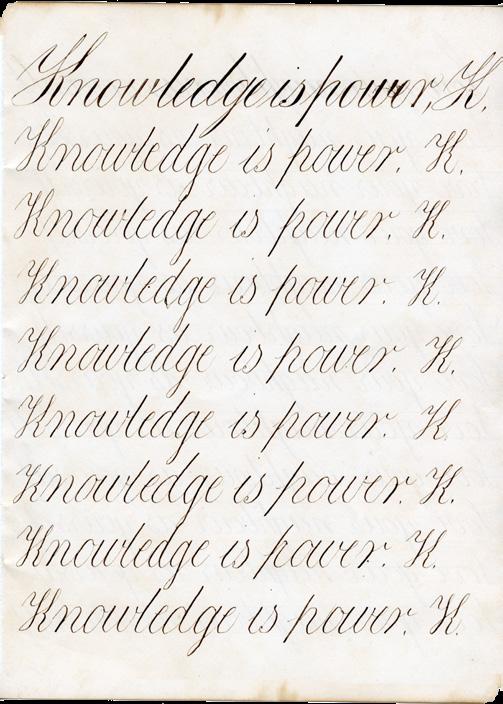 Knowledge is power, K.
Knowledge is power. K.
Knowledge is power. K.
Knowledge is power. K.
Knowledge is power. K.
Knowledge is power. K.
Knowledge is power. K.
Knowledge is power. K.
Knowledge is power. K.